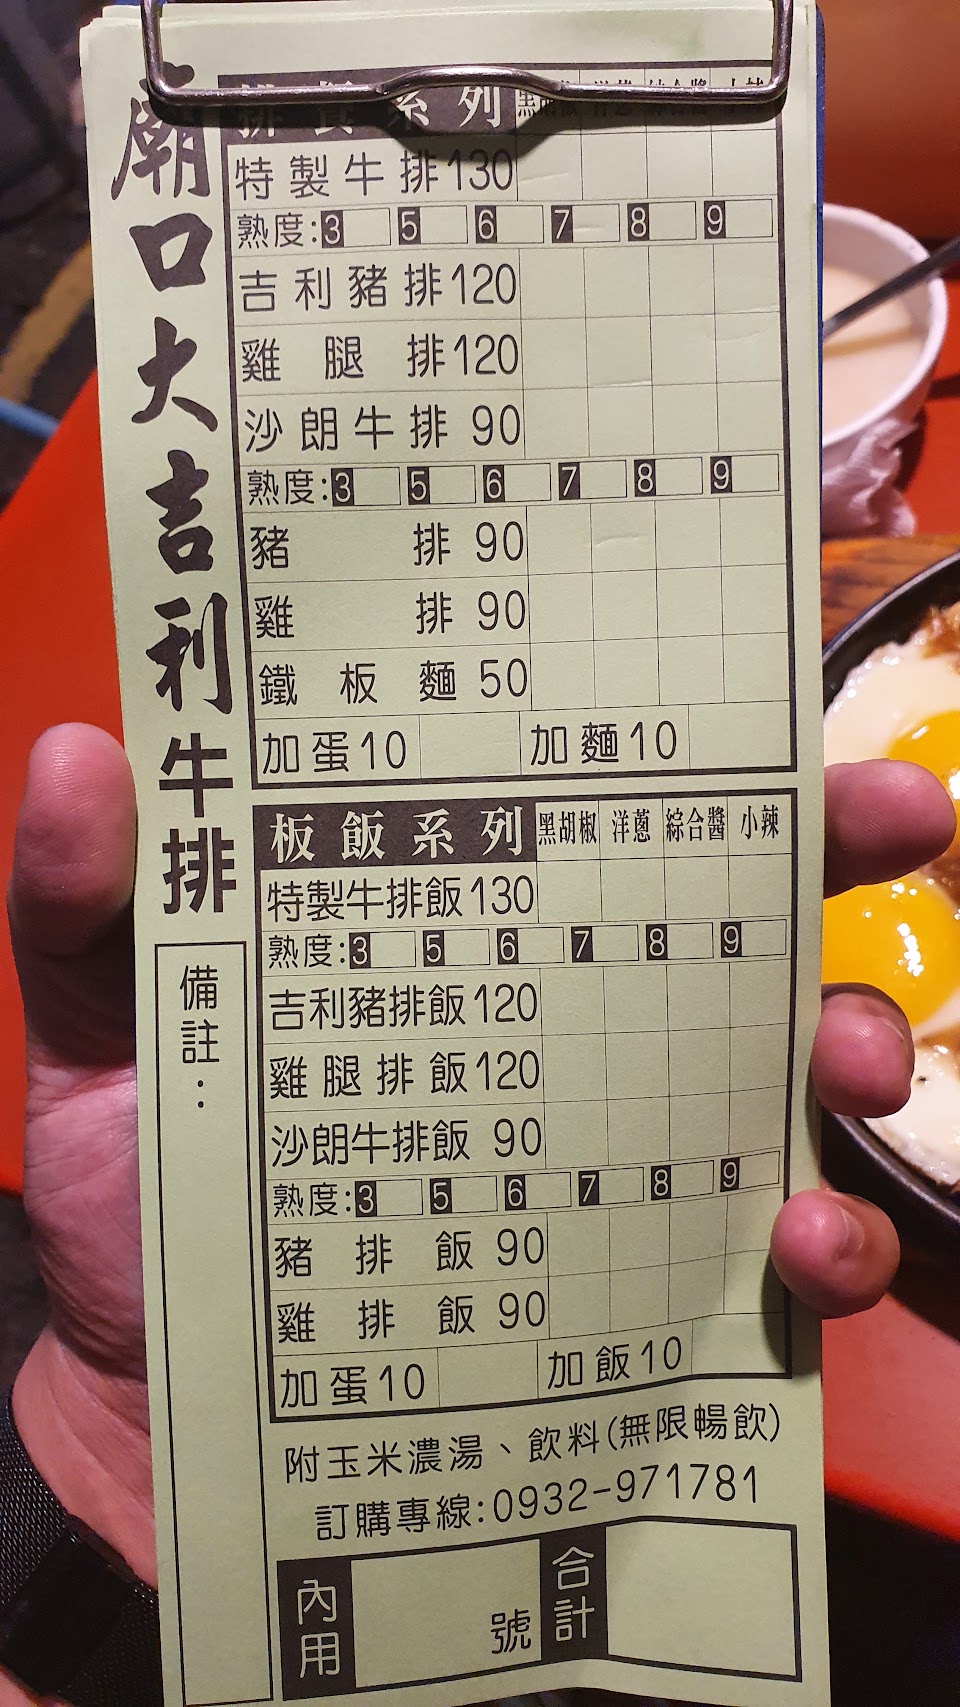 廟口大吉利牛排
備註：
排餐系列 黑胡椒 洋蔥 綜合醬 小辣
特製牛排130
熟度:3 5 6 7 8 9
吉利豬排120
雞腿排120
沙朗牛排 90
熟度:3 5 6 7 8 9
豬排 90
雞排 90
鐵板麵 50
加蛋10 加麵10
板飯系列 黑胡椒 洋蔥 綜合醬 小辣
特製牛排飯130
熟度:3 5 6 7 8 9
吉利豬排飯120
雞腿排飯120
沙朗牛排飯 90
熟度:3 5 6 7 8 9
豬排飯 90
雞排飯 90
加蛋10 加飯10
附玉米濃湯、飲料(無限暢飲)
訂購專線:0932-971781
內用 號 合計